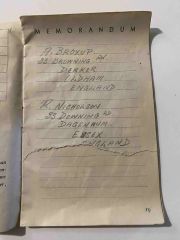 MEMORANDUM
A. BROXUP.
33 BROWNING RD
DERKER
OLDHAM
ENGLAND
K. NICHOLSON
33 DENNING RD
DAGENHAM
ESSEX
ENGLAND